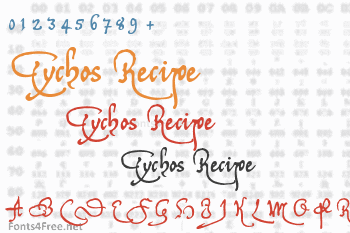 0 1 2 3 4 5 6 7 8 9 +
Tychos Recipe
Tychos Recipe
Tychos Recipe
A B C D E F G H I J K L M N O P R
Fonts4Free.net